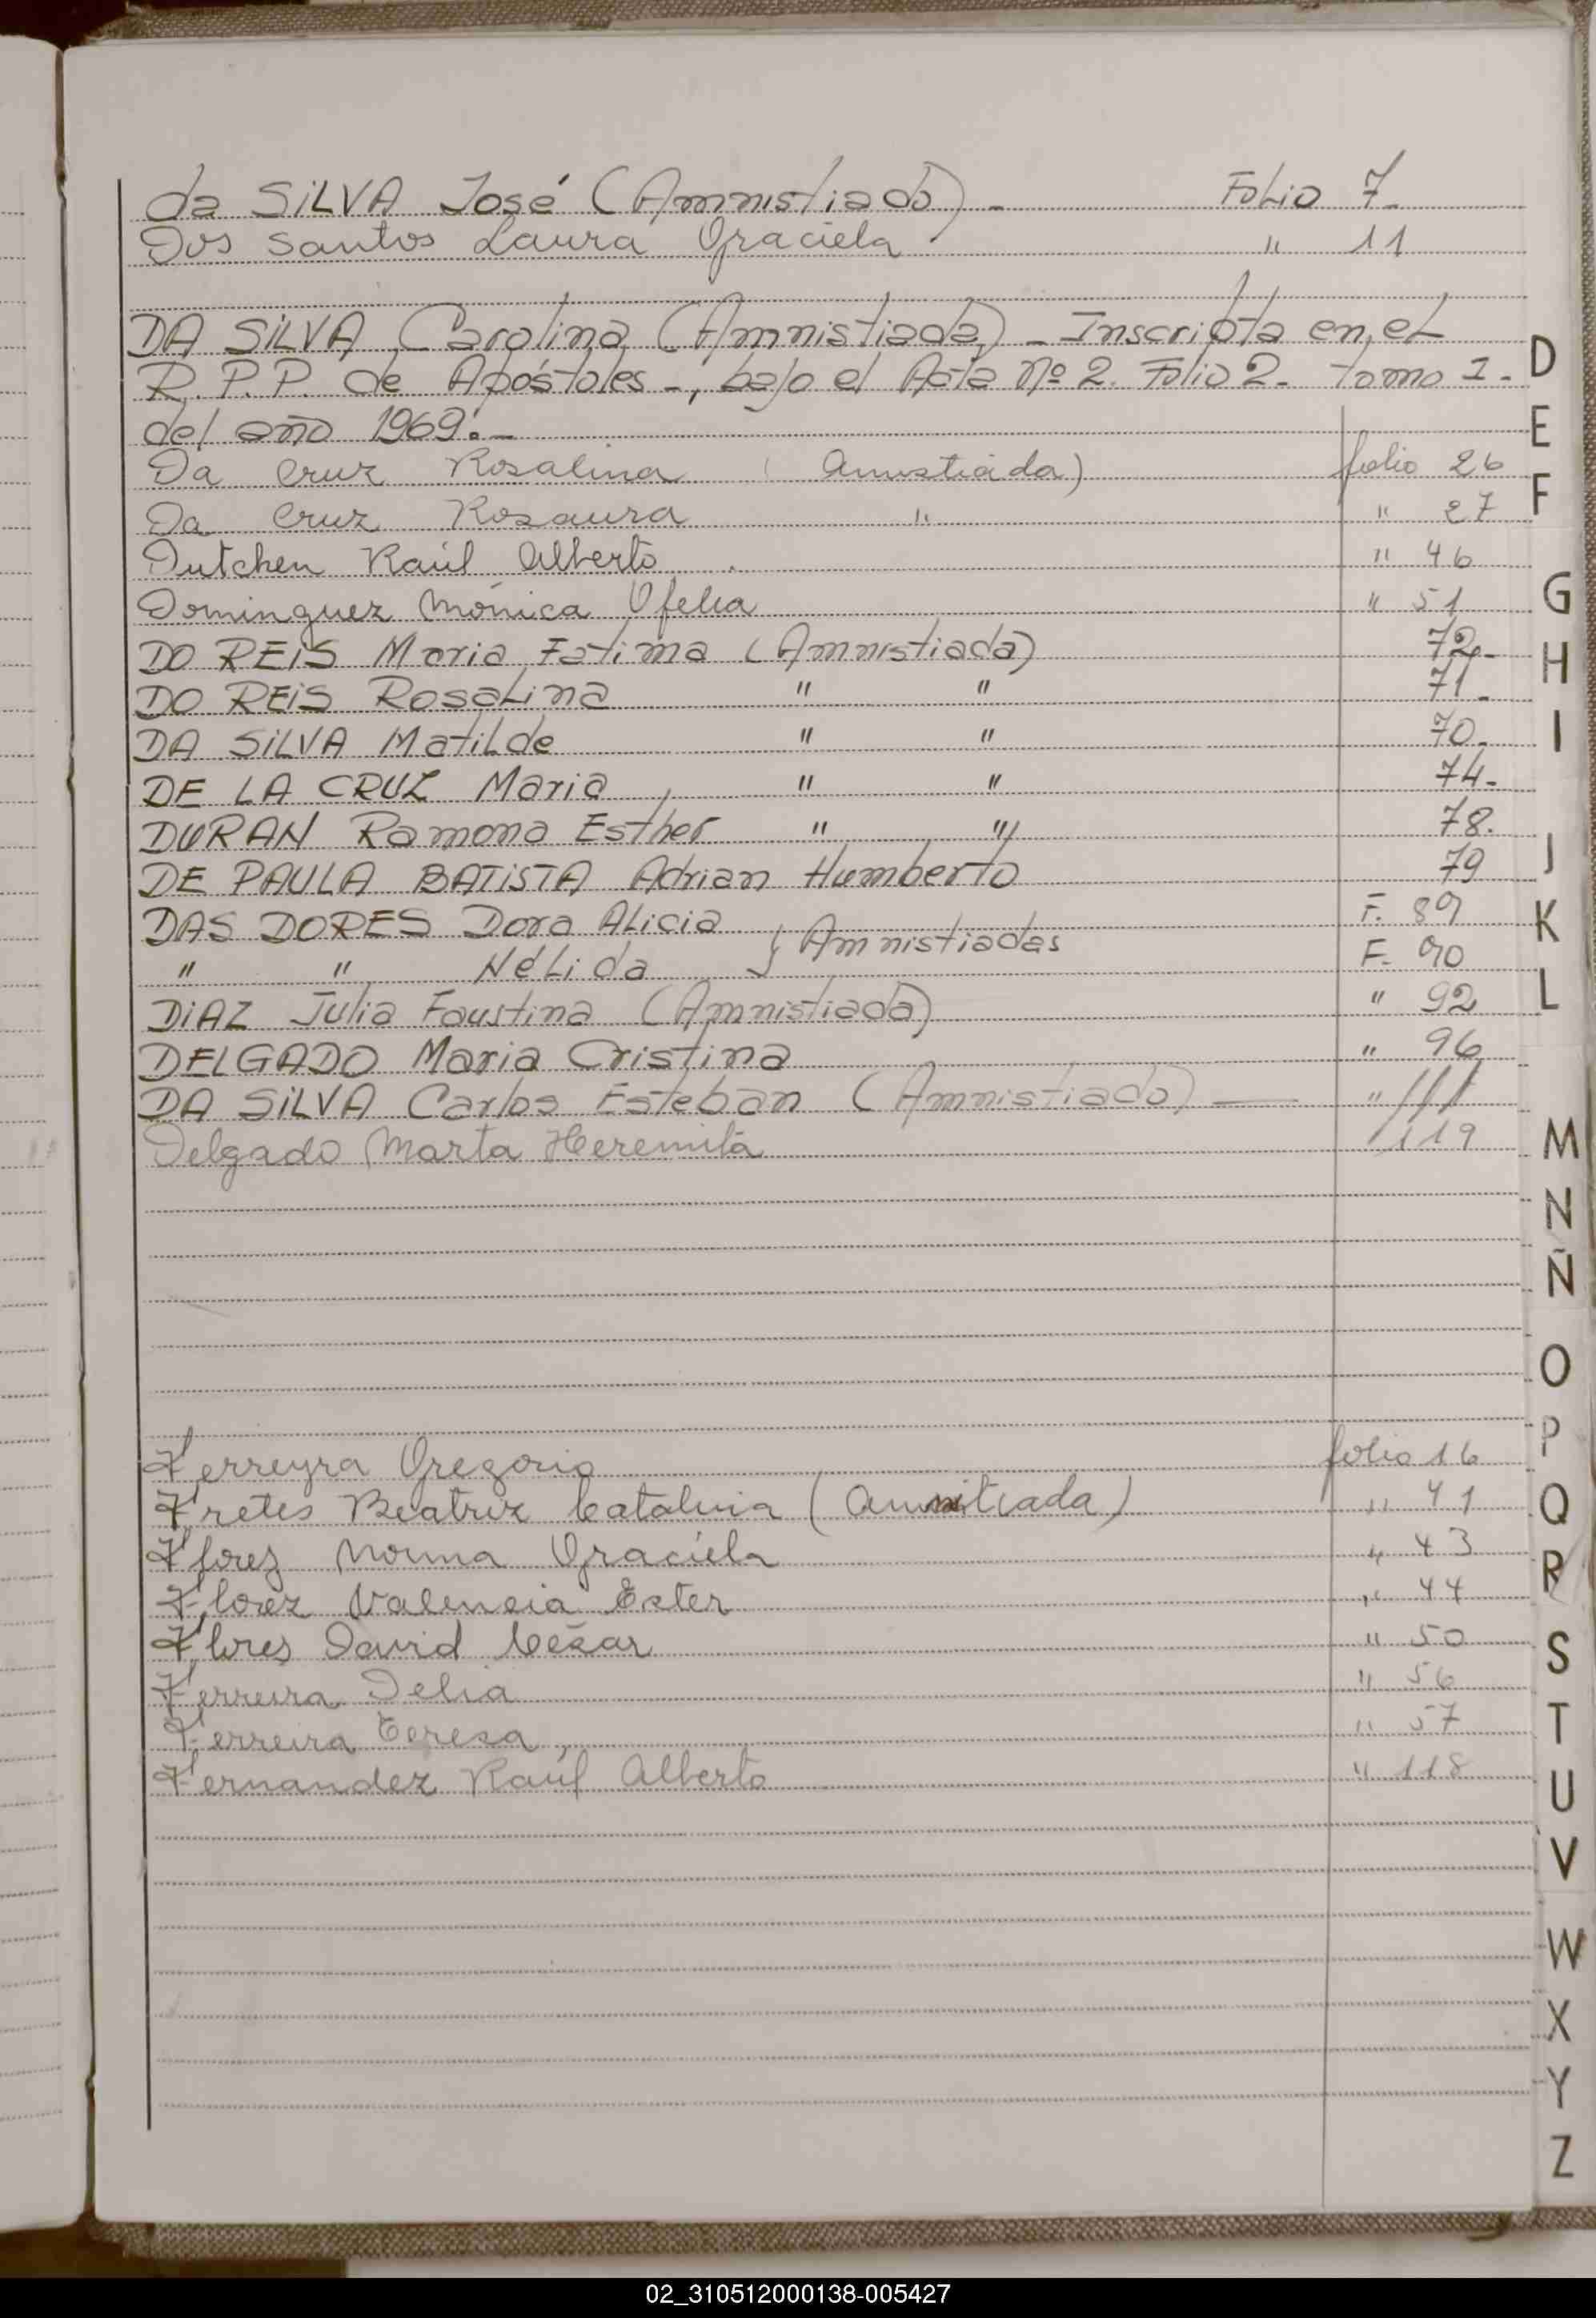 da SiLVA José (Amnistiado) - Folio 7-
Dos Santos Laura Graciela " 11
DA SiLVA Carolina (Amnistiada) - Inscripta en el
R.P.P. de Apóstoles -, bajo el Acta Nº 2. Folio 2- tomo 1-
del año 1969.-
Da Cruz Rosalina (Amistiada) folio 26
Da Cruz Rosaura " " 27
Dutchen Raúl Alberto " 46
Dominguez Mónica Ofelia " 51
DO REiS Maria Fatima (Amnistiada) 72-
DO REiS Rosalina " " 71-
DA SiLVA Matilde " " 70-
DE LA CRUZ Maria " " 74-
DURAN Ramona Esther " " 78.
DE PAULA BATiSTA Adrian Humberto 79
DAS DORES Dora Alicia F. 89
} Amnistiadas
" " Nélida F. 90
DiAZ Julia Faustina (Amnistiada) " 92
DELGADO Maria Cristina " 96
DA SiLVA Carlos Esteban (Amnistiado) — " 111
Delgado Marta Heremila 119
Ferreyra Gregorio folio 16
Fretes Beatriz Catalina (Amnistiada) " 41
Florez Norma Graciela " 43
Florez Valencia Ester " 44
Flores David César " 50
Ferreira Delia " 56
Ferreira Teresa " 57
Fernandez Raúl Alberto " 118
D
E
F
G
H
I
J
K
L
M
N
Ñ
O
P
Q
R
S
T
U
V
W
X
Y
Z
02_310512000138-005427